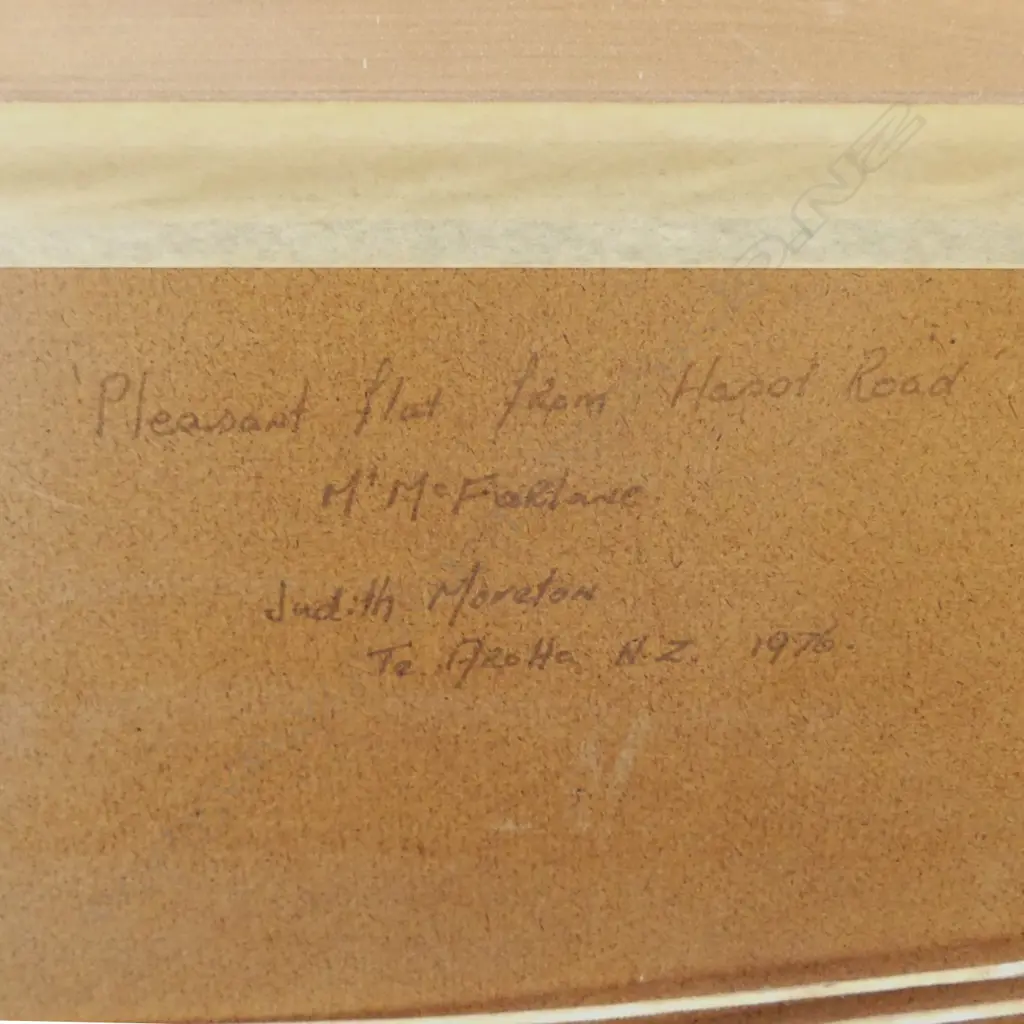 'Pleasant flat from Haast Road'
Mt McFarlane
Judith Moreton
Te Aroha N.Z. 1976.
O.NZ